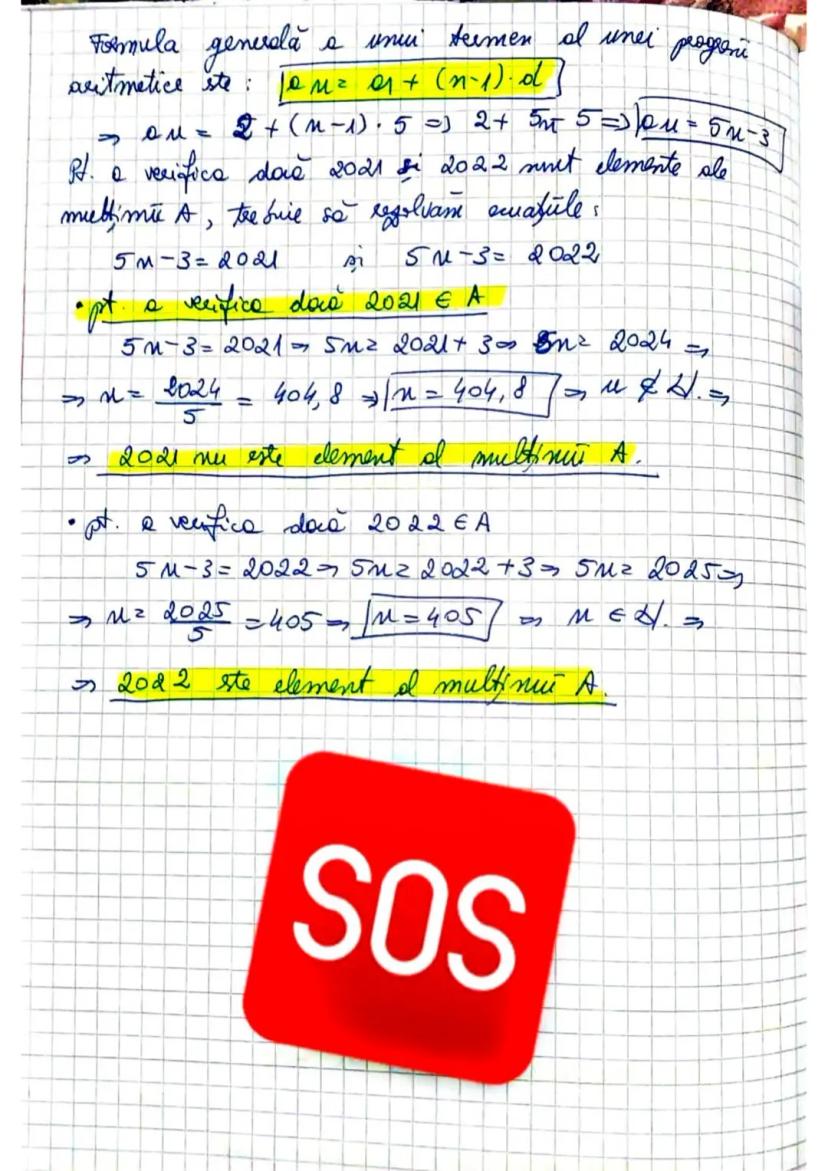 Formula generală a unui termen al unei progresii
aritmetice este: an = a1 + (n-1)·d
⇒ an = 2 + (n-1)·5 ⇒ 2 + 5n - 5 ⇒ an = 5n-3
Pt. a verifica dacă 2021 și 2022 sunt elemente ale
mulțimii A, trebuie să rezolvăm ecuațiile:
5n-3 = 2021 și 5n-3 = 2022
• pt. a verifica dacă 2021 ∈ A
5n-3 = 2021 ⇒ 5n = 2021 + 3 ⇒ 5n = 2024 ⇒
⇒ n = 2024/5 = 404,8 ⇒ n = 404,8 ⇒ n ∉ ℕ. ⇒
⇒ 2021 nu este element al mulțimii A.
• pt. a verifica dacă 2022 ∈ A
5n-3 = 2022 ⇒ 5n = 2022 + 3 ⇒ 5n = 2025 ⇒
⇒ n = 2025/5 = 405 ⇒ n = 405 ⇒ n ∈ ℕ. ⇒
⇒ 2022 este element al mulțimii A.
SOS